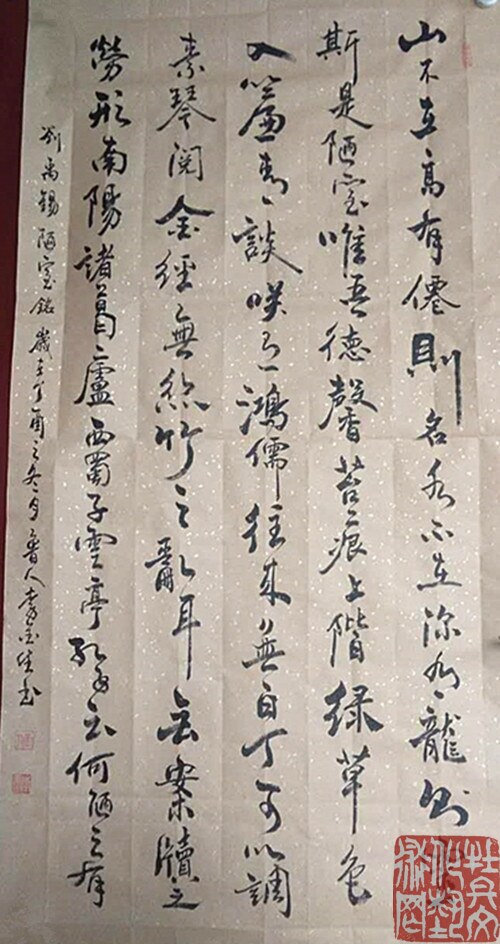 山不在高有僊則名水不在深有龍則
斯是陋室唯吾德馨苔痕上階綠草色
入簾青談咲有鴻儒往來無白丁可以調
素琴閱金經無絲竹之亂耳無案牘之
勞形南陽諸葛廬西蜀子雲亭孔子云何陋之有
劉禹錫陋室銘歲在丁酉之冬月魯人李金生書